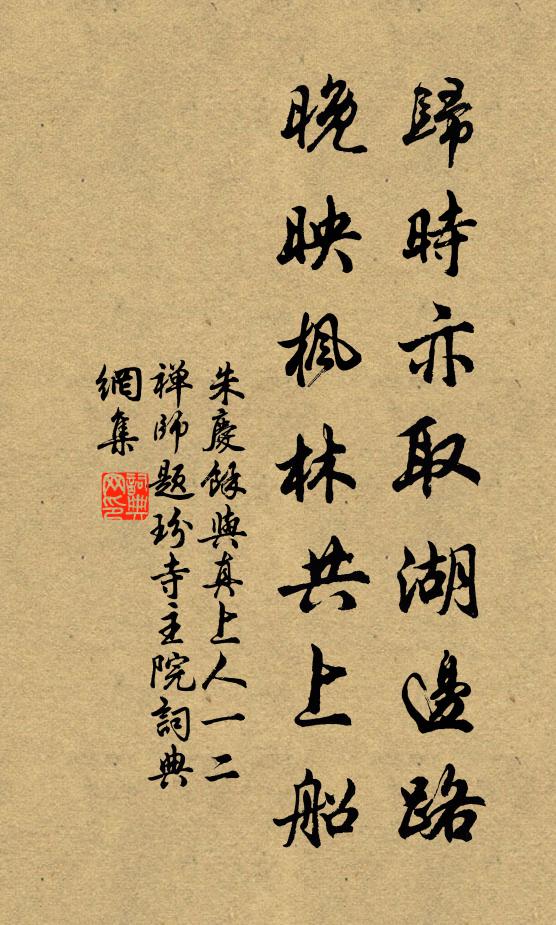 歸時亦取湖邊路
晚映楓林共上船
朱慶餘與真上人一二
禅師題玢寺主院詞典
網集
詞典
网印